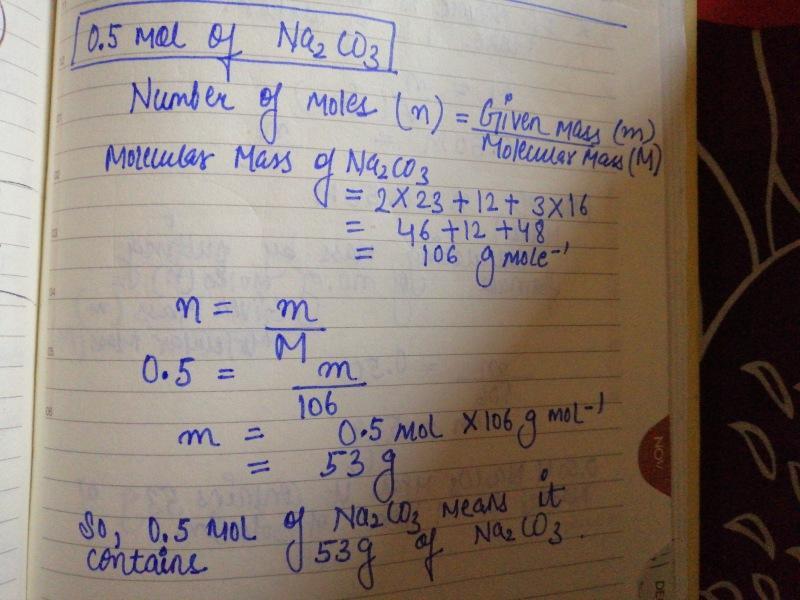 0.5 mol of Na₂CO₃
Number of moles (n) = Given mass (m) / Molecular Mass (M)
Molecular Mass of Na₂CO₃
= 2×23 + 12 + 3×16
= 46 + 12 + 48
= 106 g mole⁻¹
n = m / M
0.5 = m / 106
m = 0.5 mol × 106 g mol⁻¹
= 53 g
So, 0.5 mol of Na₂CO₃ means it
contains 53g of Na₂CO₃.
NOV